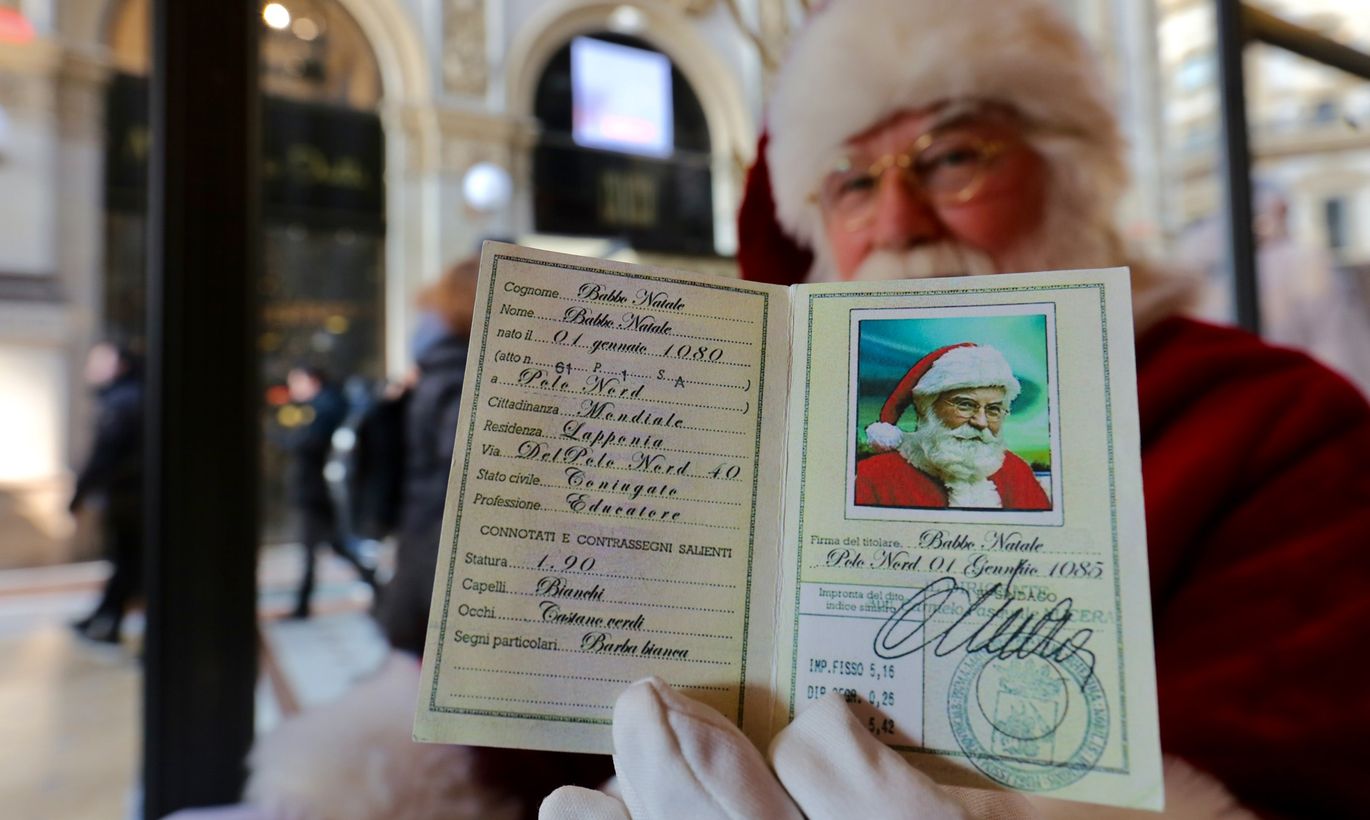 Cognome Babbo Natale
Nome Babbo Natale
nato il 01 gennaio 1080
(atto n. 61 P. 1 S. A )
a Polo Nord )
Cittadinanza Mondiale
Residenza Lapponia
Via Del Polo Nord 40
Stato civile Coniugato
Professione Educatore
CONNOTATI E CONTRASSEGNI SALIENTI
Statura 1.90
Capelli Bianchi
Occhi Castano verdi
Segni particolari Barba bianca
Firma del titolare Babbo Natale
Polo Nord 01 Gennaio 1085
Impronta del dito
indice sinistro
IMP.FISSO 5,16
0,26
5,42